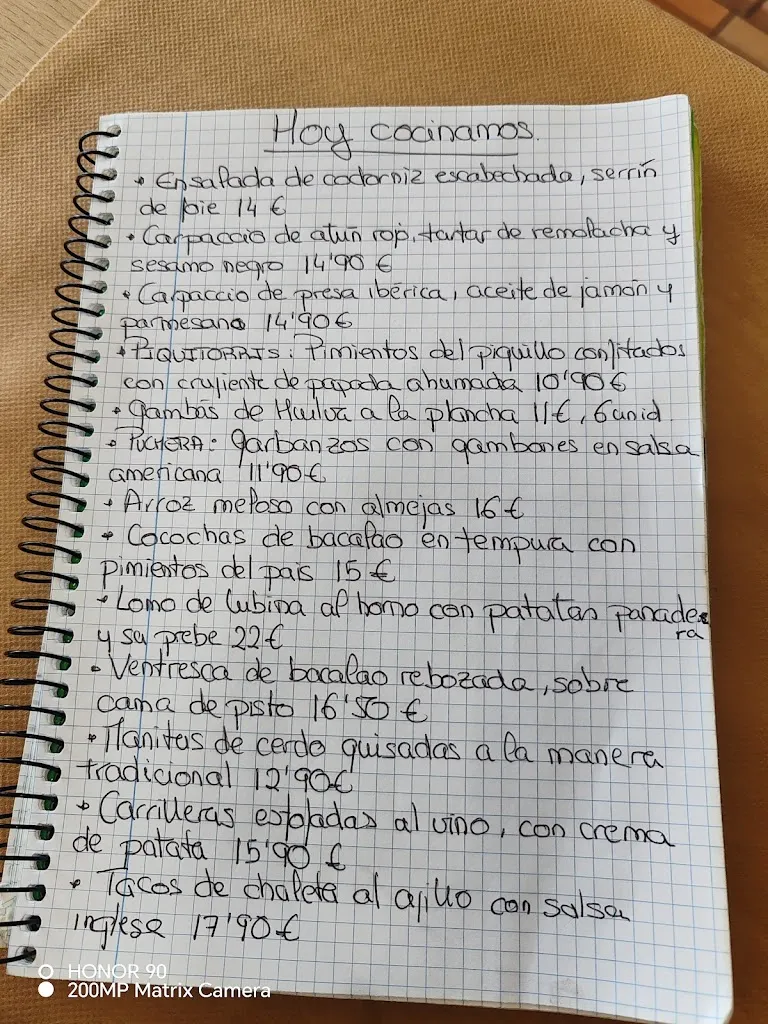 Hoy cocinamos.
• Ensalada de codorniz escabechada, serrín
de foie 14 €
• Carpaccio de atún rojo, tartar de remolacha y
sesamo negro 14'90 €
• Carpaccio de presa ibérica, aceite de jamón y
parmesano 14'90€
• PIQUITORRIS: Pimientos del piquillo confitados
con crujiente de papada ahumada 10'90€
• Gambas de Huelva a la plancha 11€, 6unid.
• PUCHERA: garbanzos con gambones en salsa
americana 11'90€
• Arroz meloso con almejas 16€
• Cocochas de bacalao en tempura con
pimientos del pais 15 €
• Lomo de lubina al horno con patatas panade
ra
y su prebe 22€
• Ventresca de bacalao rebozada, sobre
cama de pisto 16'50 €
• Manitas de cerdo guisadas a la manera
tradicional 12'90€
• Carrilleras estofadas al vino, con crema
de patata 15'90 €
• Tacos de chuleta al ajillo con salsa
inglesa 17'90€
HONOR 90
200MP Matrix Camera